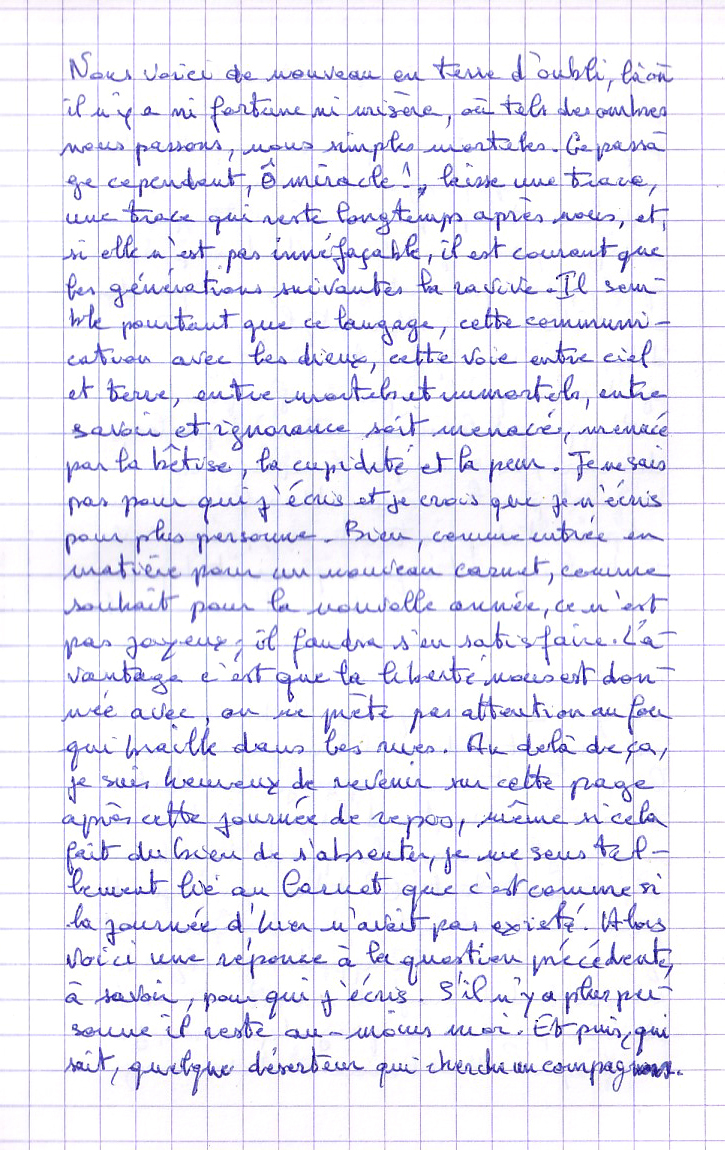 Nous voici de nouveau en terre d'oubli, là où
il n'y a ni fortune ni misère, où tels des ombres
nous passons, nous simples mortels. Ce passa-
ge cependant, Ô miracle !, laisse une trace,
une trace qui reste longtemps après nous, et,
si elle n'est pas innéfaçable, il est courant que
les générations suivantes la ravive. Il sem-
ble pourtant que ce langage, cette communi-
cation avec les dieux, cette voie entre ciel
et terre, entre mortels et immortels, entre
savoir et ignorance soit menacé, menacé
par la bêtise, la cupidité et la peur. Je ne sais
pas pour qui j'écris et je crois que je n'écris
pour plus personne. Bien, comme entrée en
matière pour un nouveau carnet, comme
souhait pour la nouvelle année, ce n'est
pas joyeux, il faudra s'en satisfaire. L'a-
vantage c'est que la liberté nous est don-
née avec, on ne prête pas attention au fou
qui braille dans les rues. Au delà de ça,
je suis heureux de revenir sur cette page
après cette journée de repos, même si cela
fait du bien de s'absenter, je me sens tel-
lement lié au Carnet que c'est comme si
la journée d'hier n'avait pas existé. Alors
voici une réponse à la question précédente,
à savoir, pour qui j'écris. S'il n'y a plus per-
sonne il reste au-moins moi. Et puis, qui
sait, quelque déserteur qui cherche un compagnon.